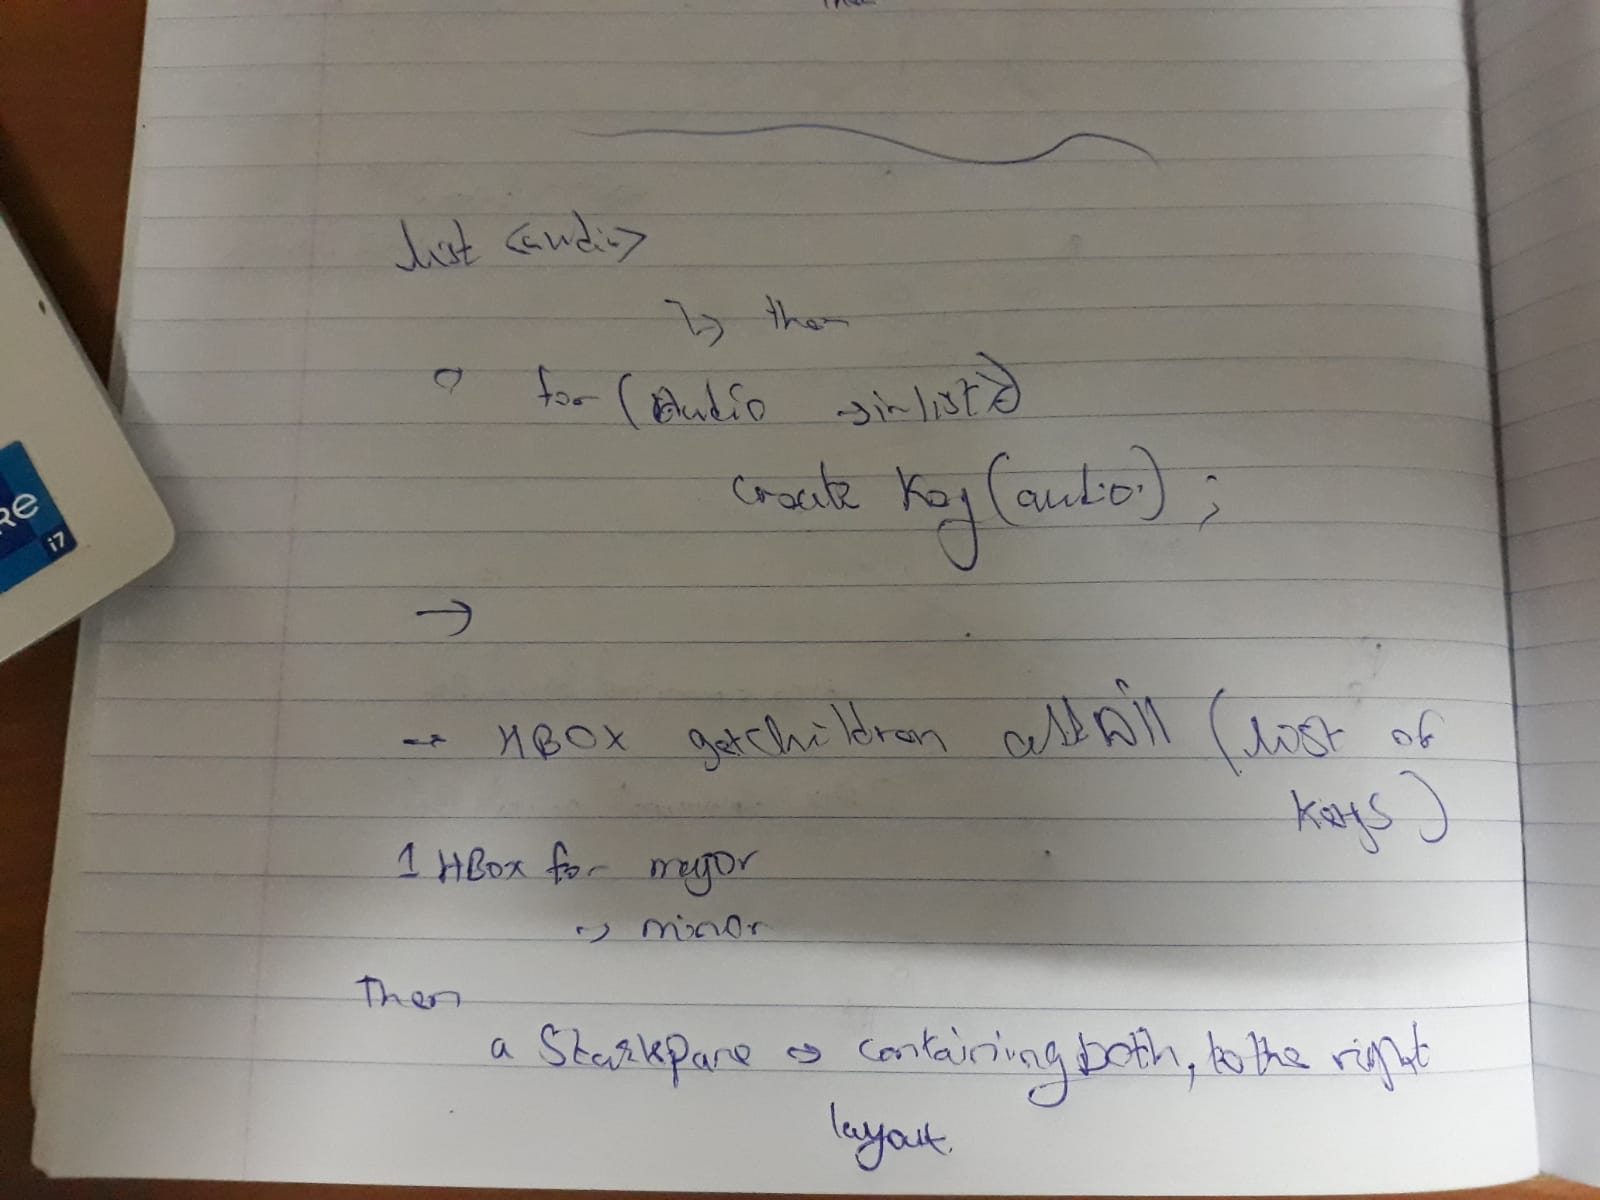 list <audio>
↳ then
o for (Audio → in list)
create Key (audio);
→
→ HBOX getChildren addAll (list of
keys)
1 HBox for major
→ minor
Then
a StackPane → containing both, to the right
layout.
RE
i7